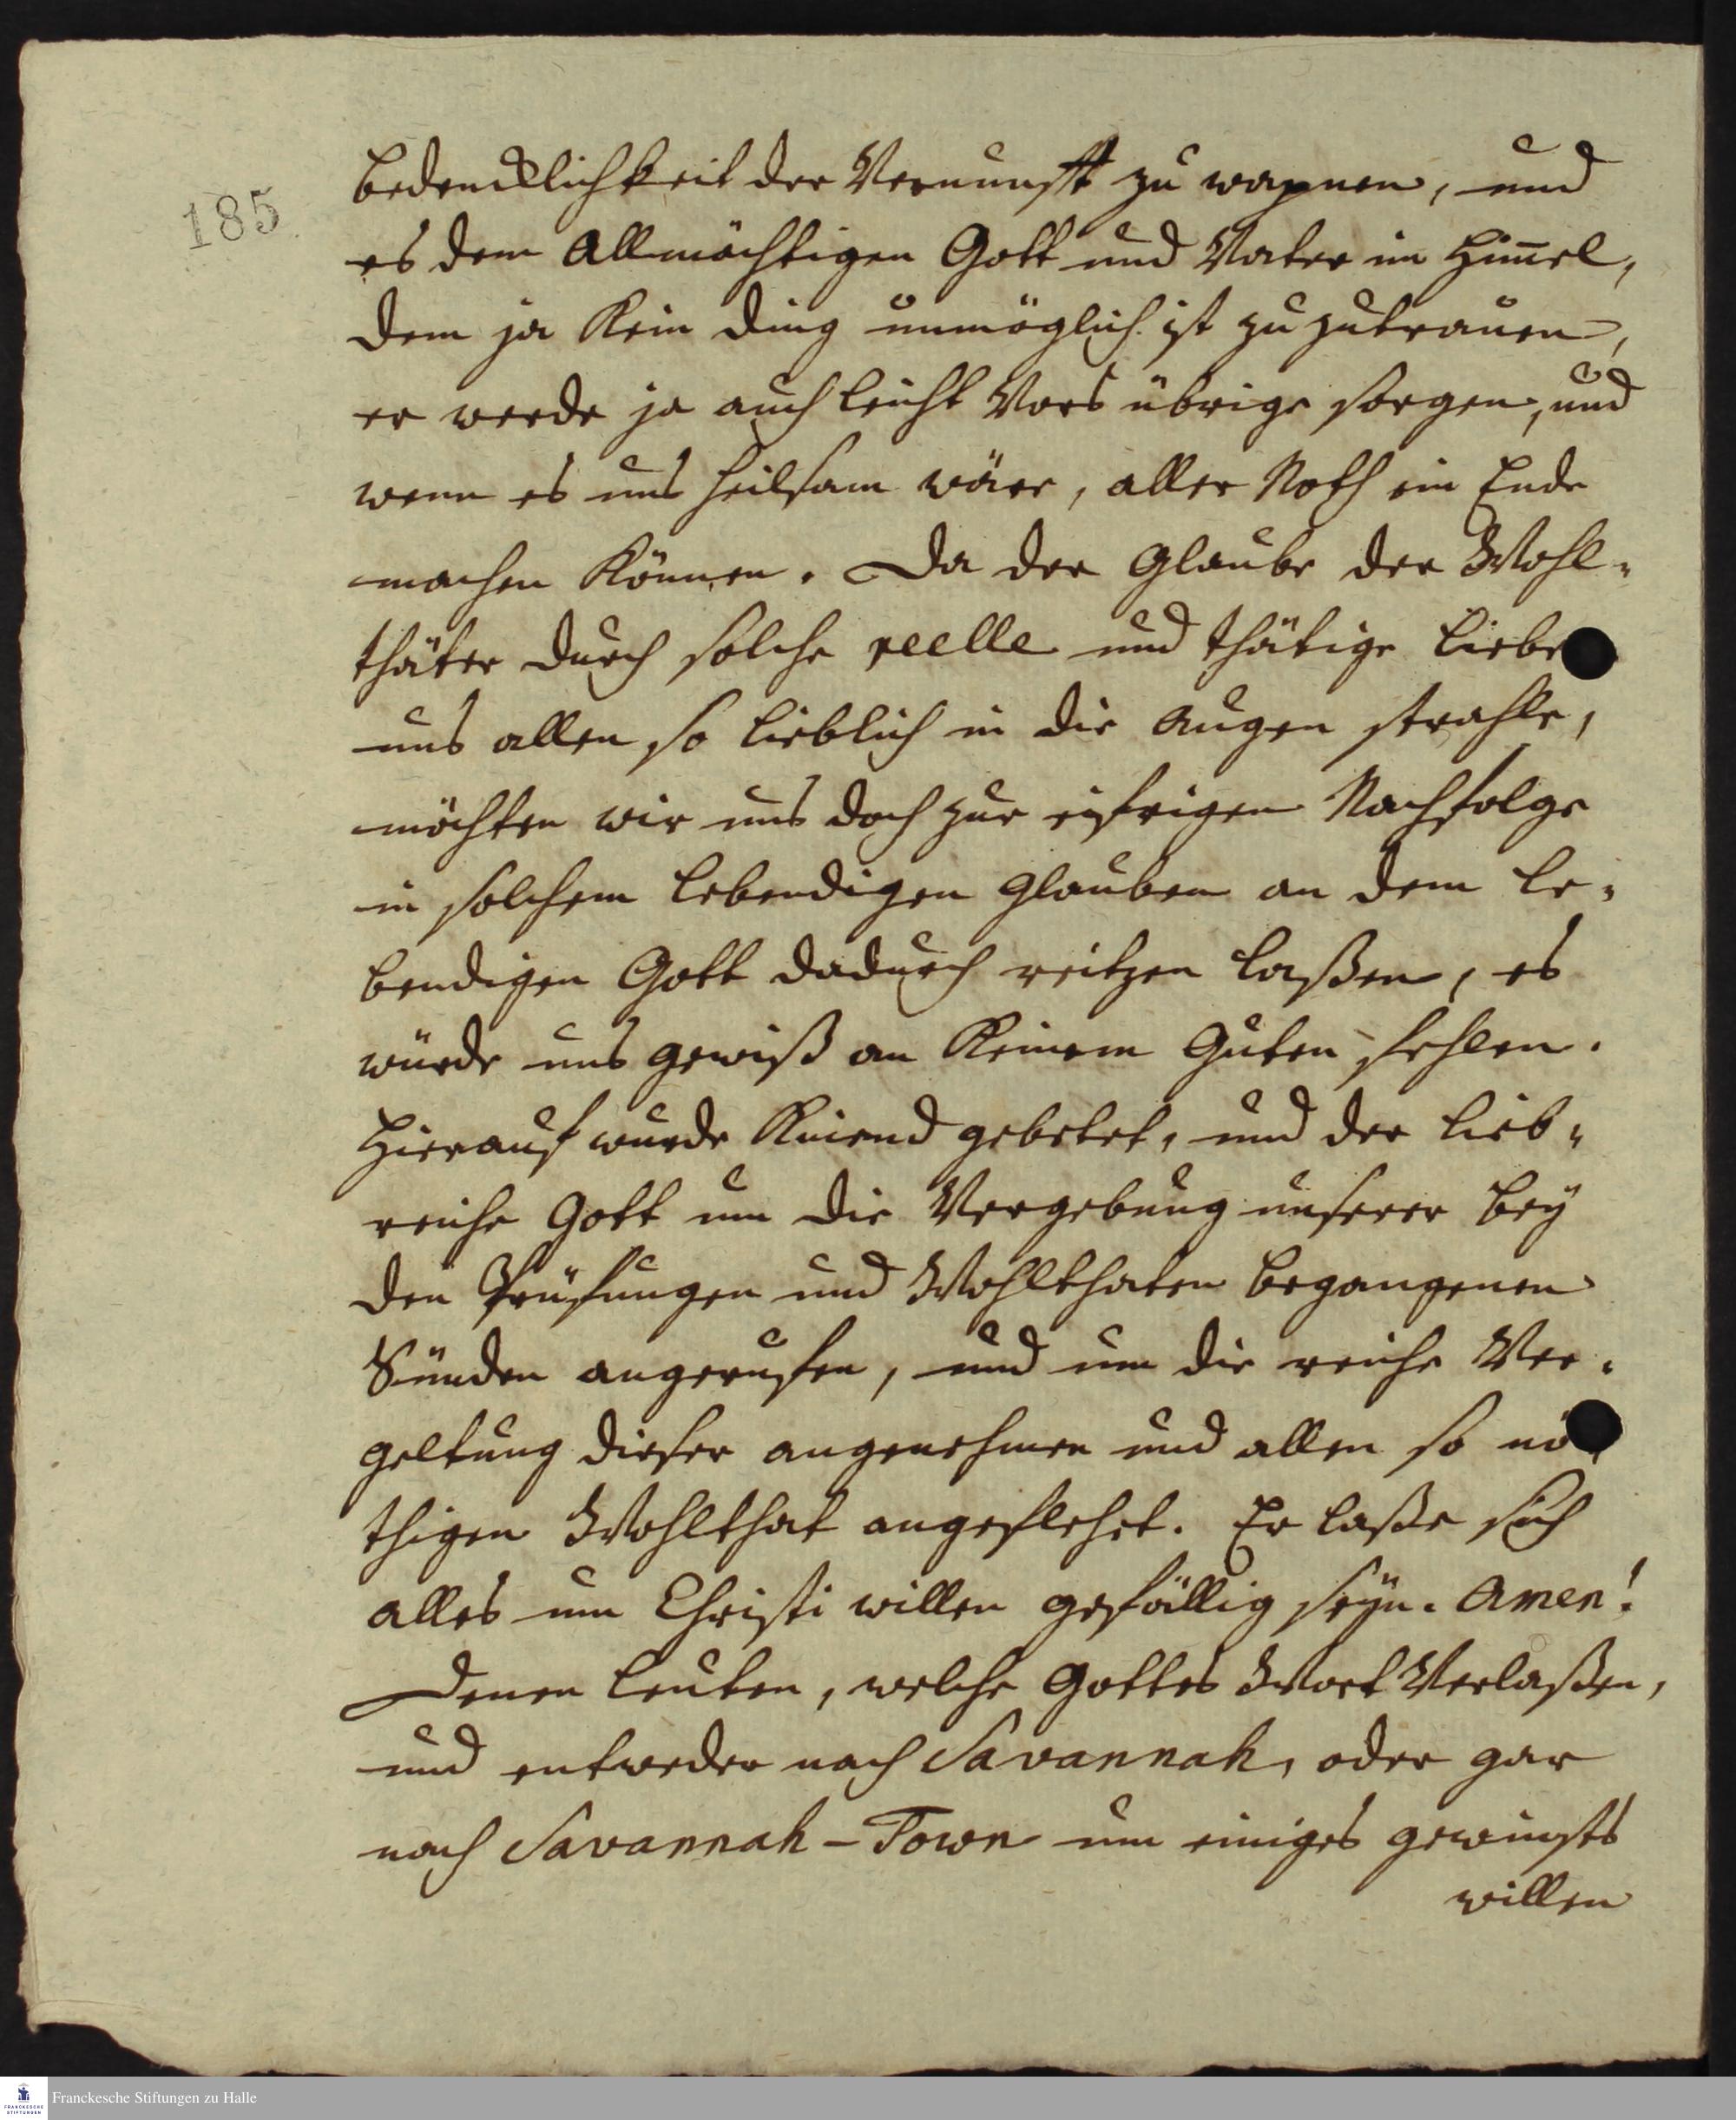 185
Bedencklichkeit der Vernunfft zu wapnen, und
es dem Allmächtigen Gott und Vater im Him̄el,
dem ja kein ding unmöglich ist zu zutrauen,
er werde ja auch leicht Vors übrige sorgen, und
wenn es uns heilsam wäre, aller Noth ein Ende
machen können. Da der Glaube der Wohl-
thäter durch solche reelle und thätige Liebe
uns allen so lieblich in die Augen strahle,
möchten wir uns doch zur eifrigen Nachfolge
in solchem lebendigen Glauben an dem le-
bendigen Gott dadurch reitzen laßen, es
würde uns gewiß an keinem Guten fehlen.
Hierauf wurde kniend gebetet, und der Lieb-
reiche Gott um die Vergebung unserer bey
den Prüfungen und Wohlthaten begangenen
Sünden angerufen, und um die reiche Ver-
geltung dieser angenehmen und allen so nö
thigen Wohlthat angeflehet. Er laße sich
alles um Christi willen gefällig seyn. Amen!
Denen Leuten, welche Gottes Wort Verlaßen,
und entweder nach Savannah, oder gar
nach Savannah-Town um einiges gewinsts
willen
Franckesche Stiftungen zu Halle
FRANCKESCHE
STIFTUNGEN